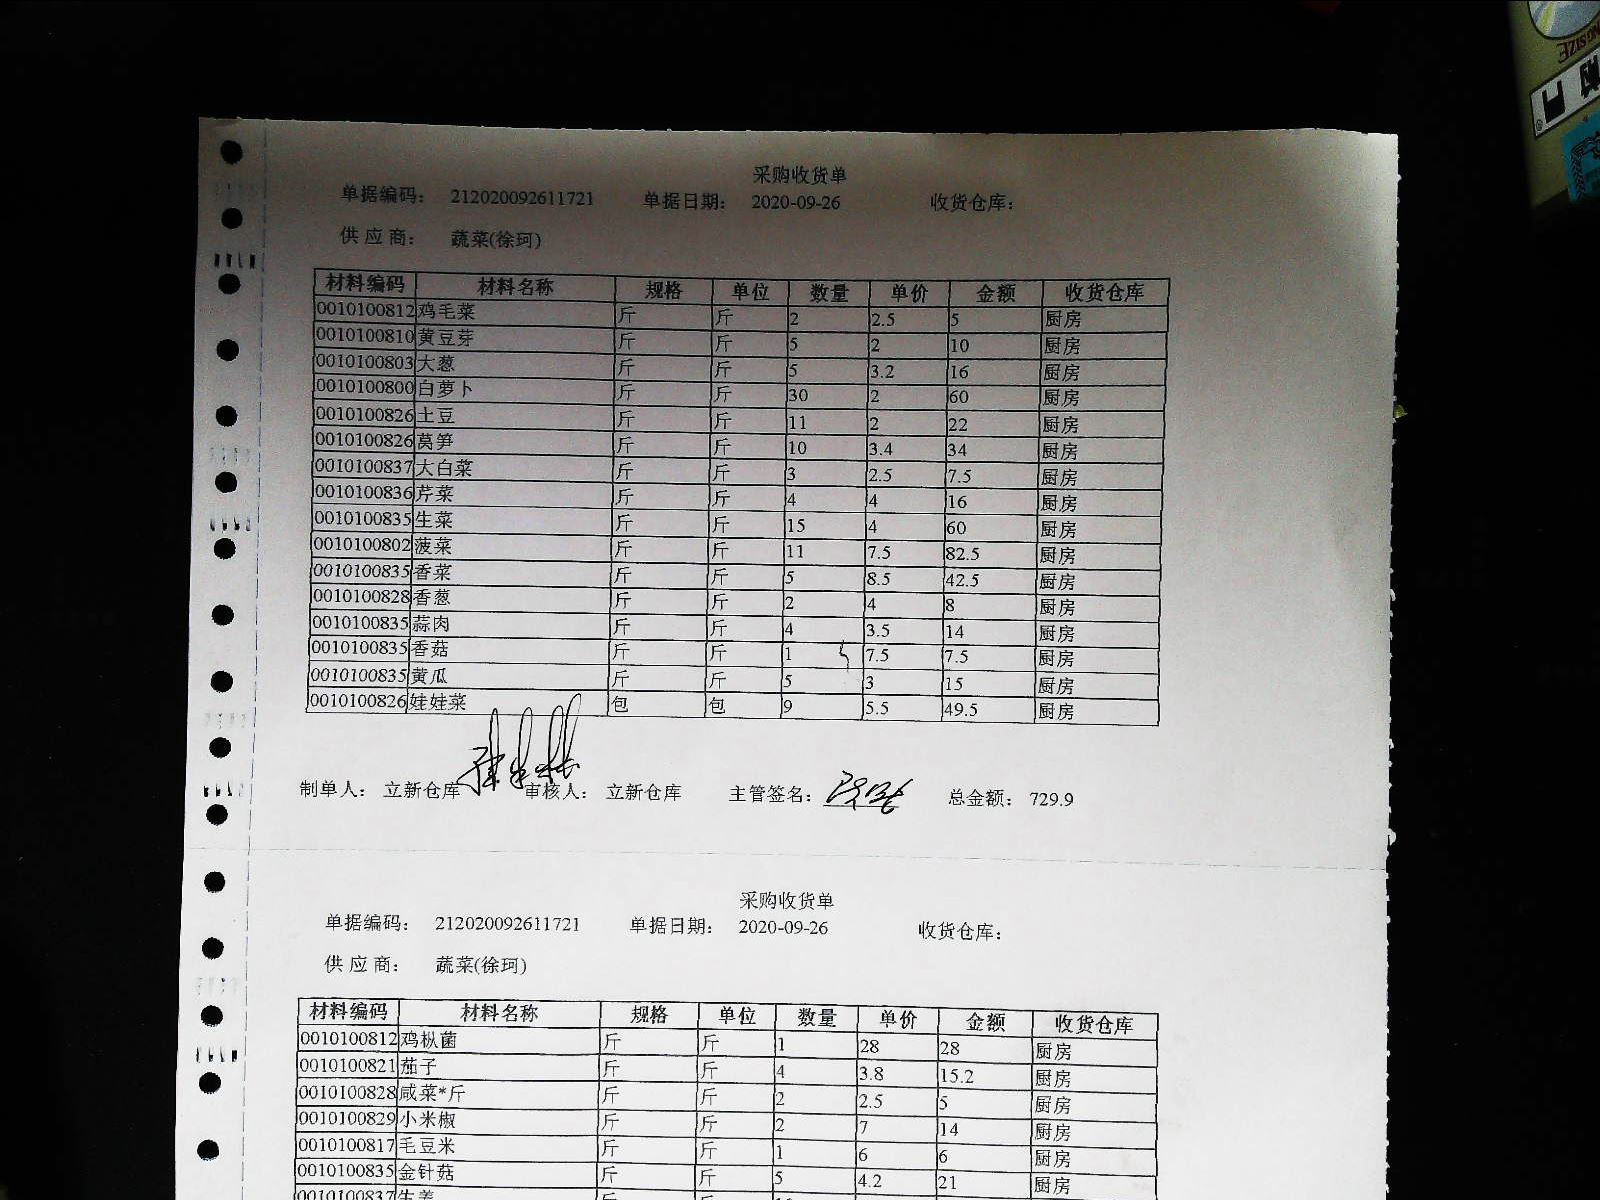 采购收货单
单据编码： 212020092611721 单据日期： 2020-09-26 收货仓库：
供 应 商： 蔬菜(徐珂)
材料编码 材料名称 规格 单位 数量 单价 金额 收货仓库
0010100812 鸡毛菜 斤 斤 2 2.5 5 厨房
0010100810 黄豆芽 斤 斤 5 2 10 厨房
0010100803 大葱 斤 斤 5 3.2 16 厨房
0010100800 白萝卜 斤 斤 30 2 60 厨房
0010100826 土豆 斤 斤 11 2 22 厨房
0010100826 莴笋 斤 斤 10 3.4 34 厨房
0010100837 大白菜 斤 斤 3 2.5 7.5 厨房
0010100836 芹菜 斤 斤 4 4 16 厨房
0010100835 生菜 斤 斤 15 4 60 厨房
0010100802 菠菜 斤 斤 11 7.5 82.5 厨房
0010100835 香菜 斤 斤 5 8.5 42.5 厨房
0010100828 香葱 斤 斤 2 4 8 厨房
0010100835 蒜肉 斤 斤 4 3.5 14 厨房
0010100835 香菇 斤 斤 1 7.5 7.5 厨房
0010100835 黄瓜 斤 斤 5 3 15 厨房
0010100826 娃娃菜 包 包 9 5.5 49.5 厨房
制单人： 立新仓库 审核人： 立新仓库 主管签名： 总金额： 729.9
采购收货单
单据编码： 212020092611721 单据日期： 2020-09-26 收货仓库：
供 应 商： 蔬菜(徐珂)
材料编码 材料名称 规格 单位 数量 单价 金额 收货仓库
0010100812 鸡枞菌 斤 斤 1 28 28 厨房
0010100821 茄子 斤 斤 4 3.8 15.2 厨房
0010100828 咸菜*斤 斤 斤 2 2.5 5 厨房
0010100829 小米椒 斤 斤 2 7 14 厨房
0010100817 毛豆米 斤 斤 1 6 6 厨房
0010100835 金针菇 斤 斤 5 4.2 21 厨房
0010100837 生姜